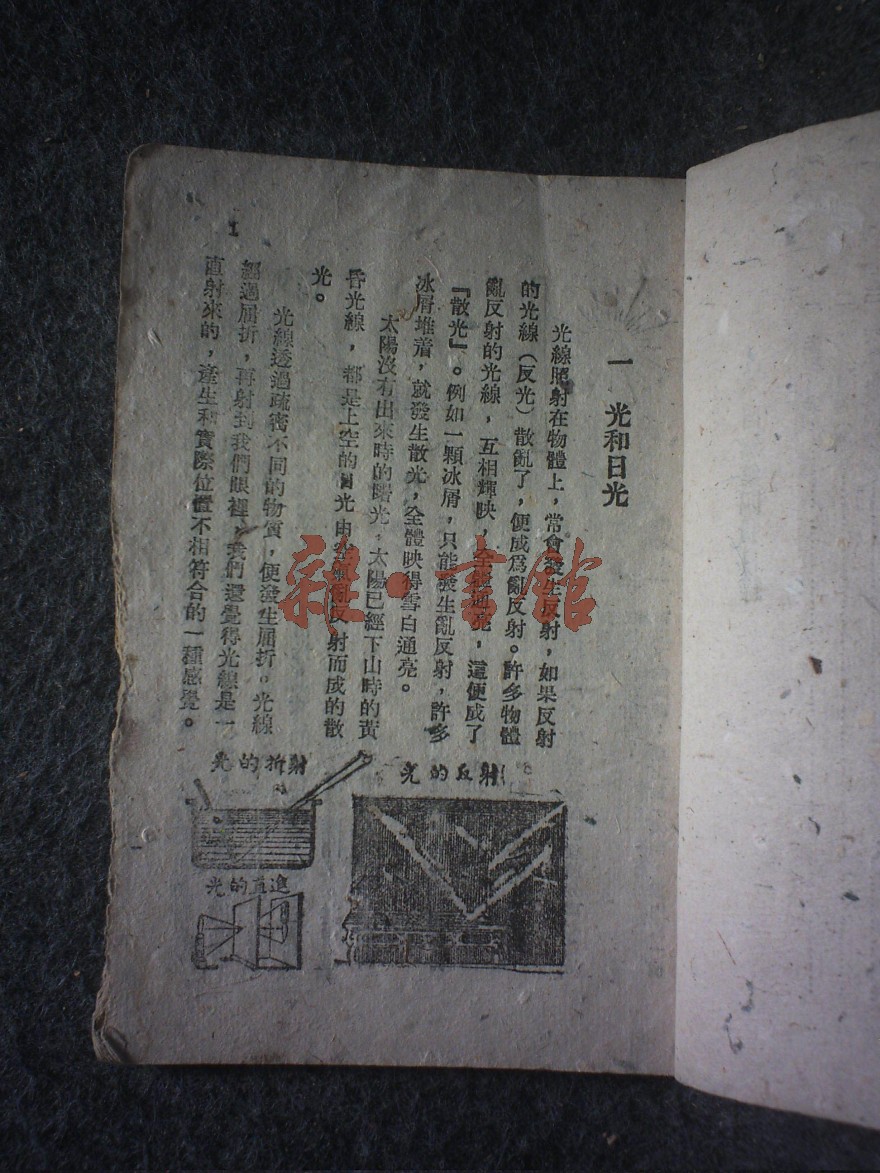 一 光和日光
光線照射在物體上，常會發生反射，如果反射
的光線（反光）散亂了，便成爲亂反射。許多物體
亂反射的光線，互相輝映，全體通亮，這便成了
『散光』。例如一顆冰屑，只能發生亂反射，許多
冰屑堆着，就發生散光，全體映得雪白通亮。
太陽沒有出來時的曙光，太陽已經下山時的黃
昏光線，都是上空的日光由空氣亂反射而成的散
光。
光線透過疏密不同的物質，便發生屈折。光線
經過屈折，再射到我們眼裡，我們還覺得光線是一
直射來的，產生和實際位置不相符合的一種感覺。
光的反射
光的折射
光的直進
1
雜·書館